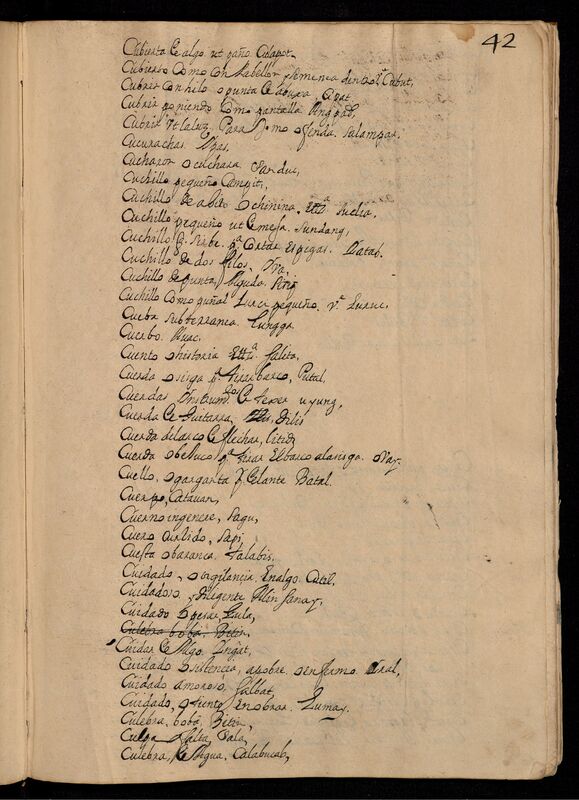 42
Cubierta de algo. ut paño. Calapot.
Cubierto como Cubut,
Cubrir con hilo o punta de aguxa Cipat
Cubrir poniendo Como pantalla Pingpad,
Cubrir la luz. Para q no ofenda. Salampar.
Cucurachas. Ypas.
Cucharon o cuchara Sanduc,
Cuchillo pequeño Campit,
Cuchillo de o chinina. Suclia,
Cuchillo pequeño ut de mesa. Sundang,
Cuchillo q. sirbe pª Cortar Espigas. Yatab.
Cuchillo de dos filos, Yva,
Cuchillo de punta, Aguda
Cuchillo Como puñal Luruc pequeño. vª Luruc,
Cueba subterranea. Lungga.
Cuerbo. Auac.
Cuento o historia Salita,
Cuerda o sirga pª tirar barco, Putal,
Cuerdas Ynstrumto de texer uyung,
Cuerda de Guitarra, Dilis
Cuerda del arco de flechar, liting
Cuerda o bejuco pª tirar El barco a la sirga. Oay.
Cuello, o garganta pr delante Batal.
Cuerpo, Catauan,
Cuerno in genere, Sagu,
Cuero Curtido, Sapi,
Cuesta o baranca. Talabis.
Cuidado, o vigilancia. En algo. Catil.
Cuidadoso. y diligente
Cuidado o pesar, Lula,
Culebra boba. Bitin,
Cuidar de Algo. Yngat,
Cuidado o asistencia, a pobre. o enfermo.
Cuidado amoroso. Salbat,
Cuidado, o tiento, En obrar. Lumay.
Culebra, boba, Bitin,
Culpa o falta, Sala,
Culebra, de Agua. Calabucab,